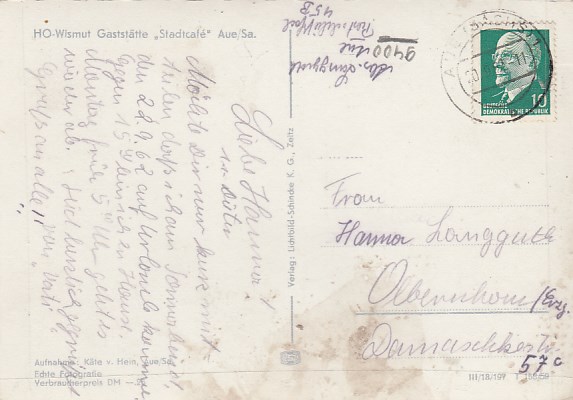 HO-Wismut Gaststätte „Stadtcafé" Aue/Sa.
Abs. Langguth
9400 Aue
45 B
Liebe Hanna!
Möchte Dir nur kurz mit-
teilen daß ich am Sonnabend
den 22.9.62 auf Urlaub komme,
Gegen 15 Uhr zu Hause.
Montag früh 5 Uhr geht es
wieder ab. Seid herzlich gegrüßt
Grüße an alle!! von Vati
Verlag: Lichtbild-Schincke K. G., Zeitz
10
DEUTSCHE DEMOKRATISCHE REPUBLIK
Frau
Hanna Langguth
Olbernhau/Erzg.
57c
Aufnahme: Käte v. Hein, Aue/Sa.
Echte Fotografie
Verbraucherpreis DM
III/18/197